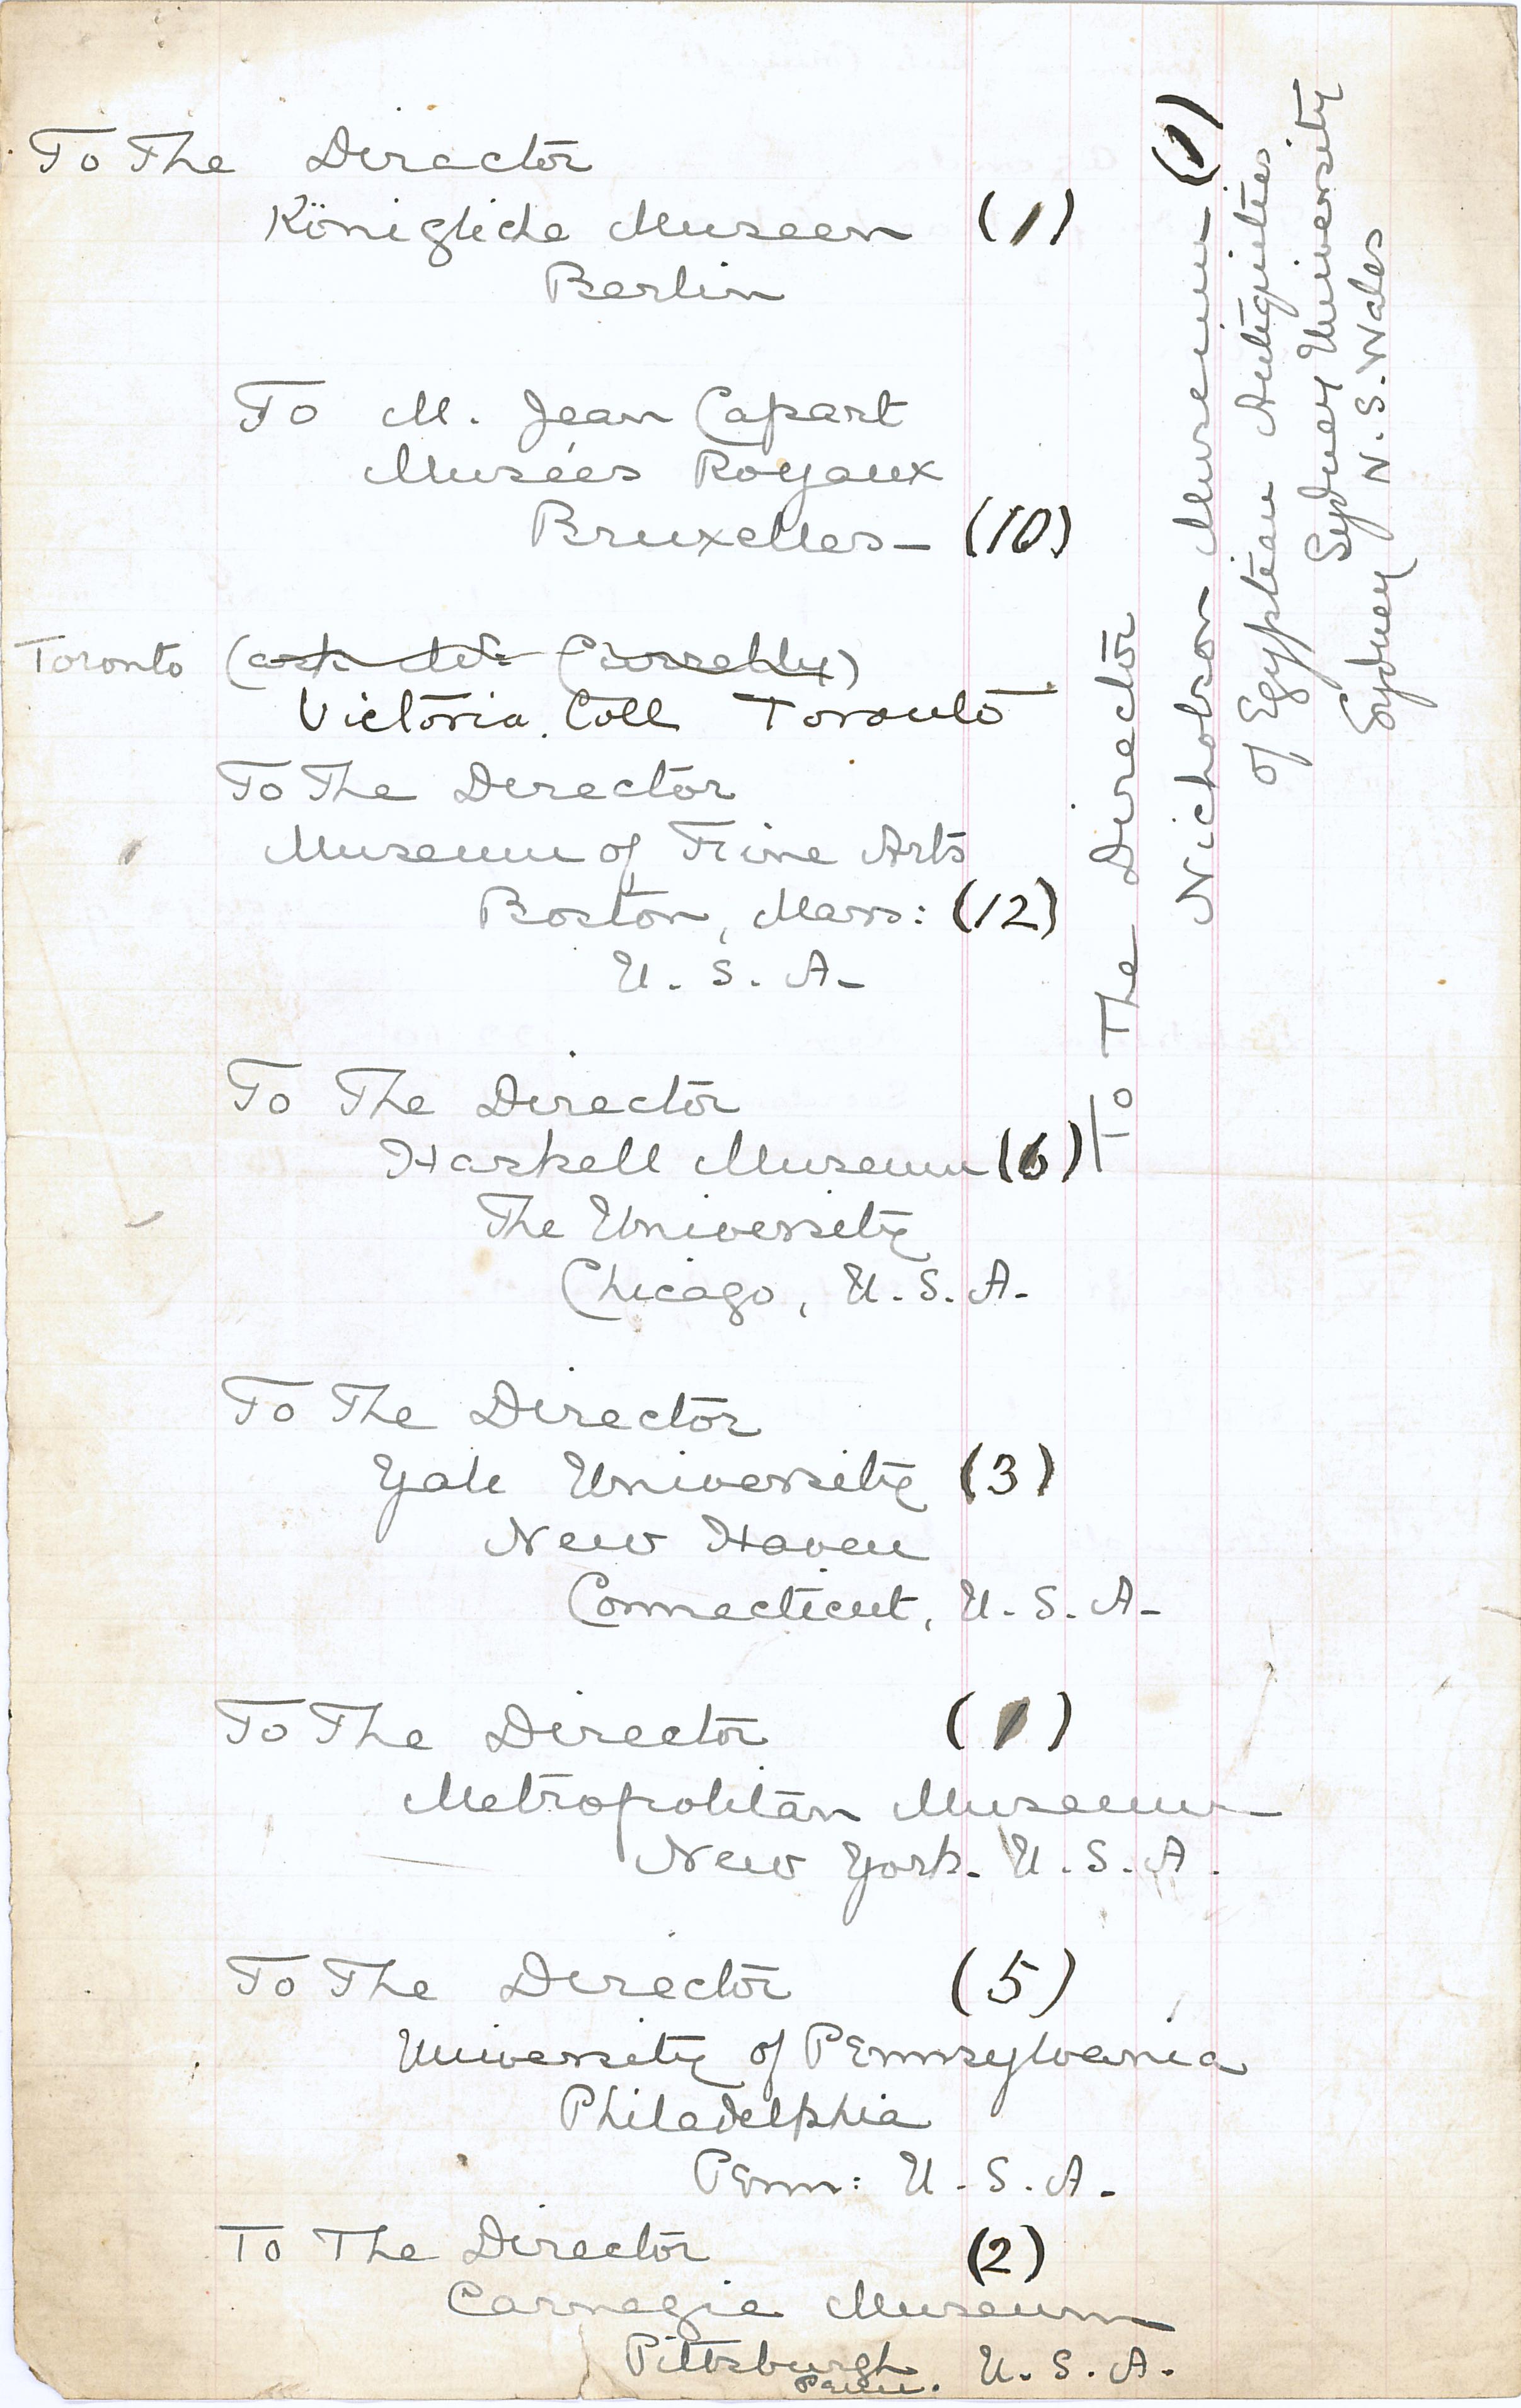 To The Director
Königliche Museen (1)
Berlin
To M. Jean Capart
Musées Royaux
Bruxelles – (10)
Toronto (ask Mr. Currelly)
Victoria. Coll Toronto
To The Director
Museum of Fine Arts
Boston, Mass: (12)
U. S. A.
To The Director
Haskell Museum (6)
The University
Chicago, U. S. A.
To The Director
Yale University (3)
New Haven
Connecticut, U. S. A.
To The Director (1)
Metropolitan Museum
New York. U. S. A.
To The Director (5)
University of Pennsylvania
Philadelphia
Penn: U. S. A.
To The Director (2)
Carnegie Museum
Pittsburgh U. S. A.
Penn.
To The Director
Nicholson Museum (1)
of Egyptian Antiquities
Sydney University
Sydney N. S. Wales